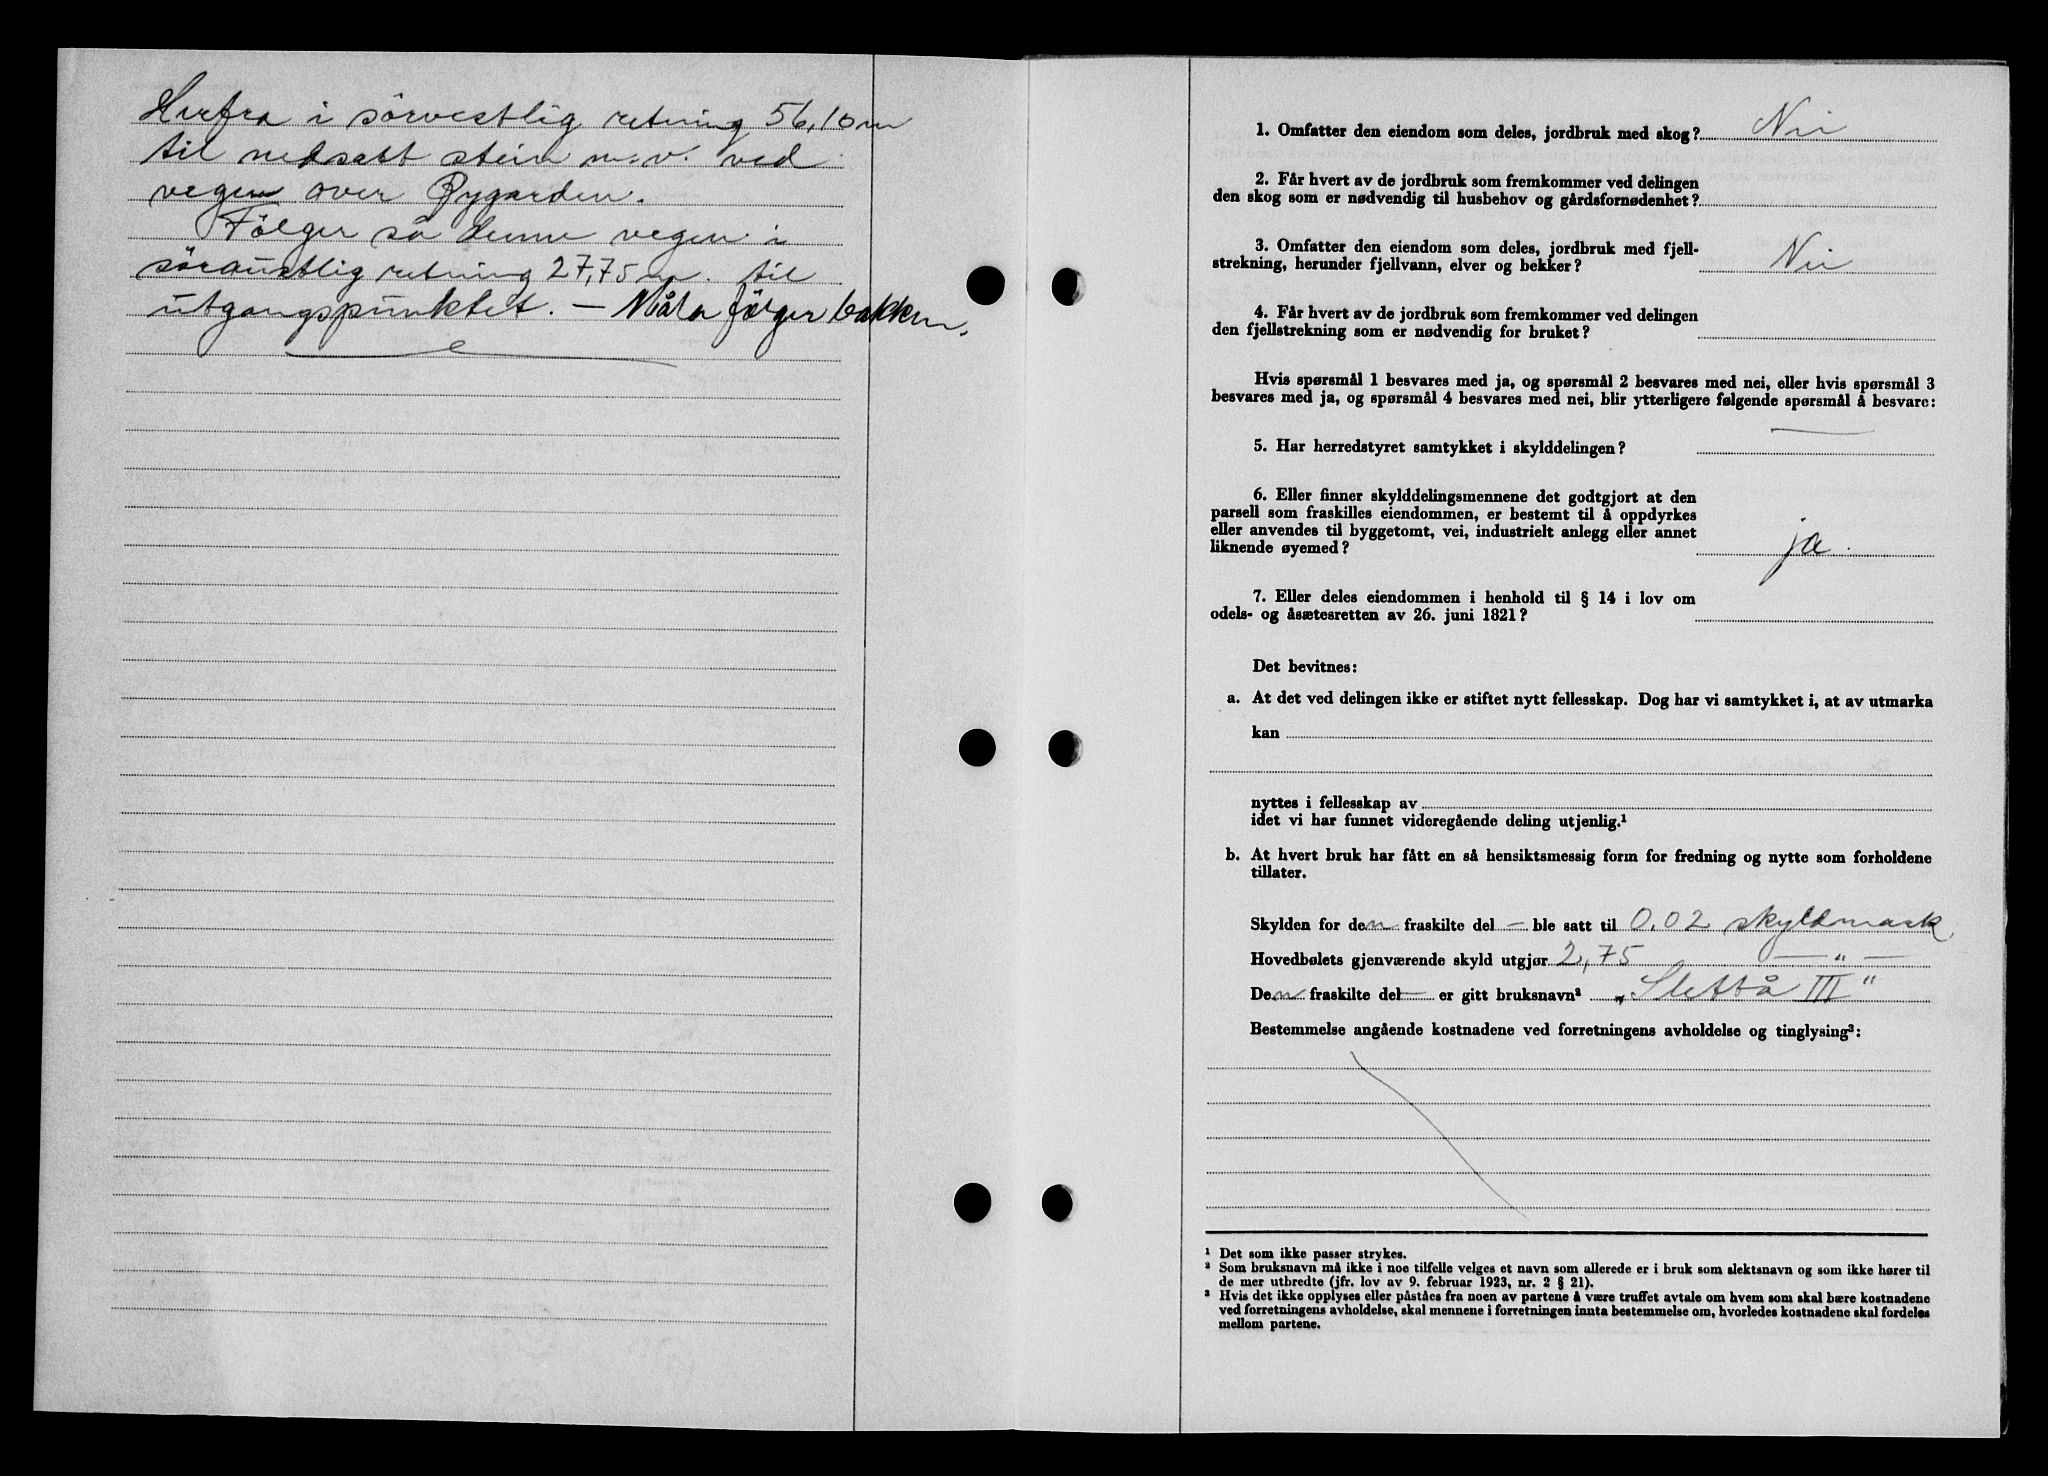 Herfra i sörvestlig retning 56,10 m
til nedsatt stein m.v. ved
vegen over Rygarden.
Fölger så denne vegen i
söraustlig retning 27,75 m. til
utgangspunktet. — Måla fölger bakken.
1. Omfatter den eiendom som deles, jordbruk med skog? Nei
2. Får hvert av de jordbruk som fremkommer ved delingen
den skog som er nødvendig til husbehov og gårdsfornødenhet?
3. Omfatter den eiendom som deles, jordbruk med fjell-
strekning, herunder fjellvann, elver og bekker? Nei
4. Får hvert av de jordbruk som fremkommer ved delingen
den fjellstrekning som er nødvendig for bruket?
Hvis spørsmål 1 besvares med ja, og spørsmål 2 besvares med nei, eller hvis spørsmål 3
besvares med ja, og spørsmål 4 besvares med nei, blir ytterligere følgende spørsmål å besvare:
5. Har herredstyret samtykket i skylddelingen?
6. Eller finner skylddelingsmennene det godtgjort at den
parsell som fraskilles eiendommen, er bestemt til å oppdyrkes
eller anvendes til byggetomt, vei, industrielt anlegg eller annet
liknende øyemed? ja.
7. Eller deles eiendommen i henhold til § 14 i lov om
odels- og åsætesretten av 26. juni 1821?
Det bevitnes:
a. At det ved delingen ikke er stiftet nytt fellesskap. Dog har vi samtykket i, at av utmarka
kan
nyttes i fellesskap av
idet vi har funnet videregående deling utjenlig.¹
b. At hvert bruk har fått en så hensiktsmessig form for fredning og nytte som forholdene
tillater.
Skylden for den fraskilte del — ble satt til 0,02 skyldmark
Hovedbølets gjenværende skyld utgjør 2,75 — „ —
Den fraskilte del — er gitt bruksnavn² „Slettå III"
Bestemmelse angående kostnadene ved forretningens avholdelse og tinglysing³:
¹ Det som ikke passer strykes.
² Som bruksnavn må ikke i noe tilfelle velges et navn som allerede er i bruk som slektsnavn og som ikke hører til
de mer utbredte (jfr. lov av 9. februar 1923, nr. 2 § 21).
³ Hvis det ikke opplyses eller påståes fra noen av partene å være truffet avtale om hvem som skal bære kostnadene
ved forretningens avholdelse, skal mennene i forretningen innta bestemmelse om, hvorledes kostnadene skal fordeles
mellom partene.